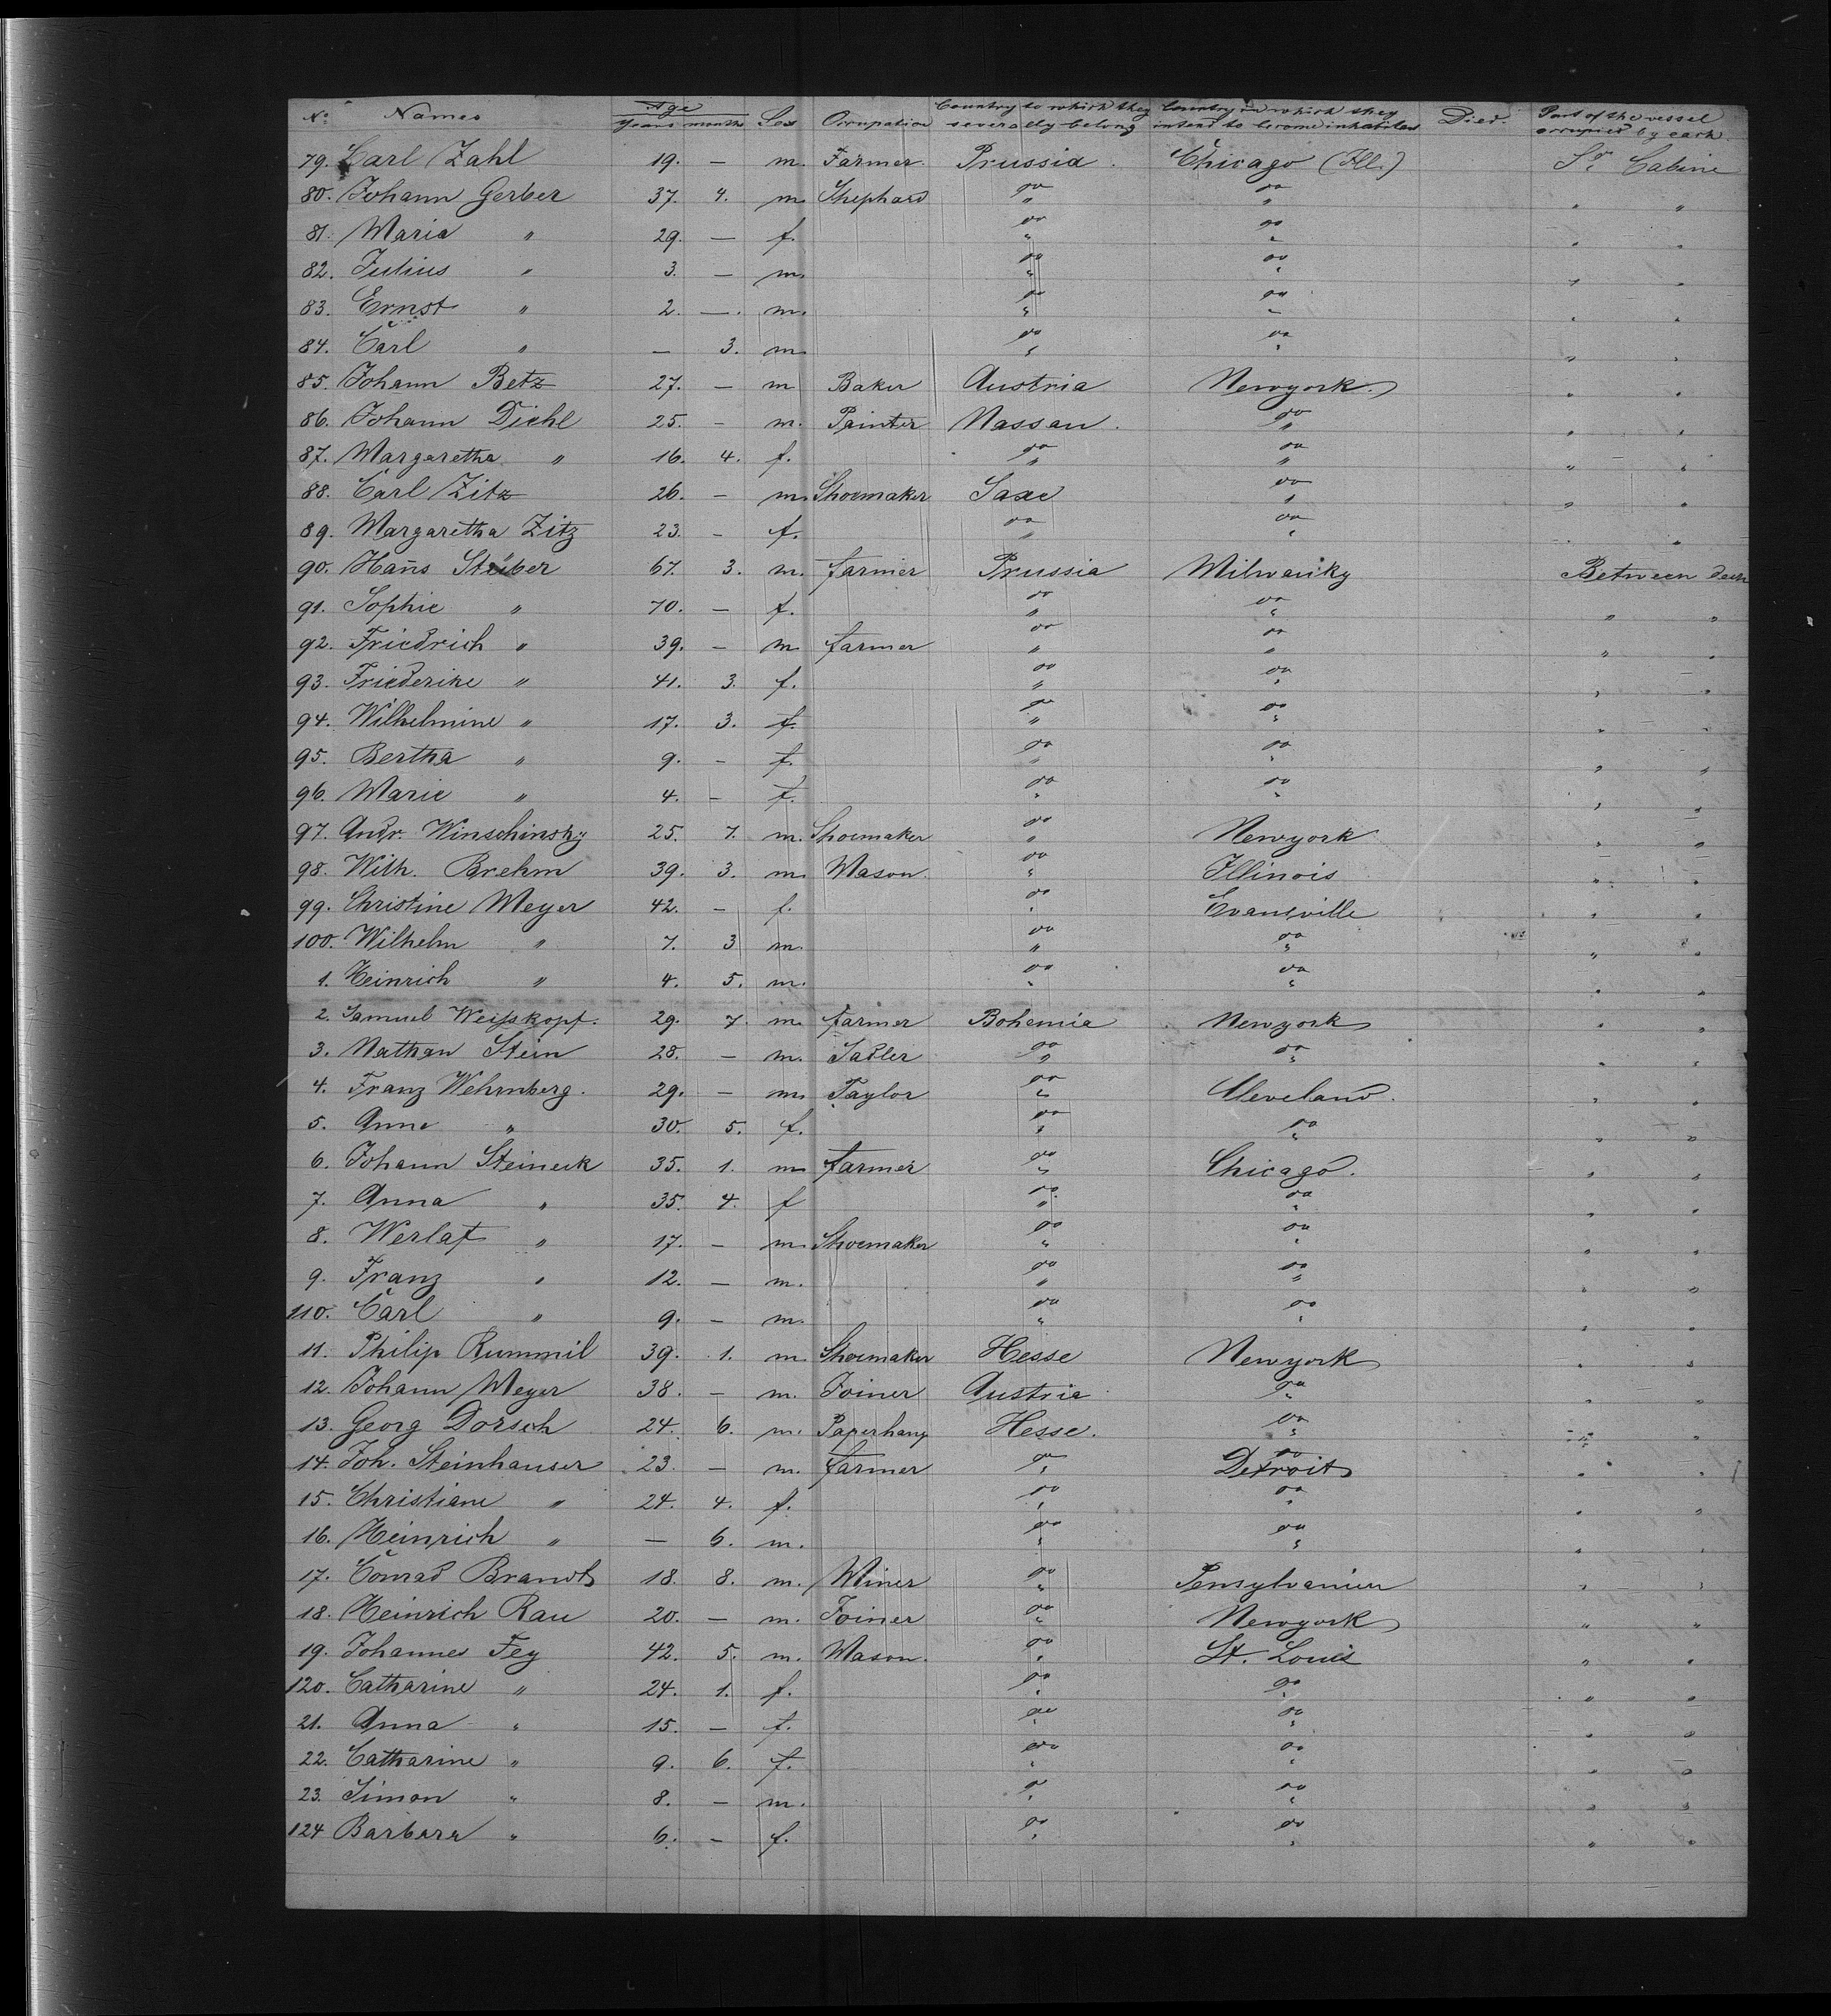 No Names Age years months Sex Occupation Country to which they severally belong Country in which they intend to become inhabitans Died. Part of the vessel occupied by each
79. Carl Zahl 19. — m. Farmer. Prussia. Chicago (Ill.) Cabine
80. Johann Gerber 37. 4. m. Shephard do " do " " "
81. Maria " 29. — f. do " do " " "
82. Julius " 3. — m. do " do " " "
83. Ernst " 2. —. m. do " do " " "
84. Carl " — 3. m. do " do " " "
85. Johann Betz 27. — m Baker Austria Newyork. " "
86. Johann Diehl 25. - m. Painter Nassau. do " " "
87. Margaretha " 16. 4. f. do " do " " "
88. Carl Zitz 26. - m. Shoemaker Saxe do " " "
89. Margaretha Zitz 23. - f. do " do " " "
90. Han̄s Stüber 67. 3. m. farmer Prussia Milwauky Between deck
91. Sophie " 70. — f. do " do " " "
92. Friedrich " 39. - m farmer do " do " " "
93. Friederike " 41. 3. f. do " do " " "
94. Wilhelmine " 17. 3. f. do " do " " "
95. Bertha " 9. - f. do " do " " "
96. Marie " 4. - f. do " do " " "
97. Andr. Winschinsky 25. 7. m. Shoemaker do " Newyork " "
98. Wilh. Brehm 39. 3. m. Mason. do " Illinois " "
99. Christine Meyer 42. - f. do " Evansville " "
100. Wilhelm " 7. 3 m. do " do " " "
1. Heinrich " 4. 5. m. do " do " " "
2. Samuel Weisskopf. 29. 7. m. farmer Bohemia Newyork " "
3. Nathan Stein 28. — m. Sadler do " do " " "
4. Franz Wehrnberg. 29. — m. Taylor do " Cleveland. " "
5. Anna " 30. 5. f. do " do " " "
6. Johann Steineck 35. 1. m farmer do " Chicago. " "
7. Anna " 35. 4. f do " do " " "
8. Werlaf " 17. - m. Shoemaker do " do " " "
9. Franz " 12. — m. do " do " " "
110. Carl " 9. - m. do " do " " "
11. Philip Rummil 39. 1. m. Shoemaker Hesse Newyork " "
12. Johann Meyer 38. - m. Joiner Austria do " " "
13. Georg Dorsch 24. 6. m. Paperhang Hesse. do " " "
14. Joh. Steinhauser 23. — m. farmer do " Detroit " "
15. Christiane " 24. 4. f. do " do " " "
16. Heinrich " — 6. m. do " do " " "
17. Conrad Brandt 18. 8. m. Miner do " Pensylvanien " "
18. Heinrich Rau 20. — m. Joiner do " Newyork " "
19. Johannes Fey 42. 5. m. Mason. do " St. Louis " "
120. Catharine " 24. 1. f. do " do " " "
21. Anna " 15. — f. do " do " " "
22. Catharine " 9. 6. f. do " do " " "
23. Simon " 8. — m. do " do " " "
124 Barbara " 6. - f. do " do " " "